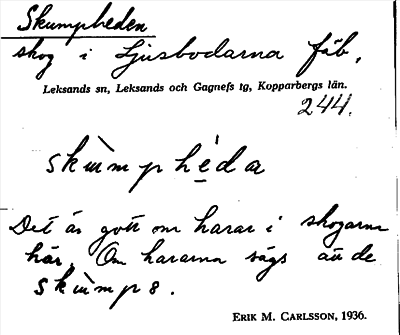 Skumpheden
skog i Ljusbodarna fäb,
Leksands sn, Leksands och Gagnefs tg, Kopparbergs län.
244.
skùmphèda
Det är gott om harar i skogarna
här. Om hararna sägs att de
skùmps.
ERIK M. CARLSSON, 1936.